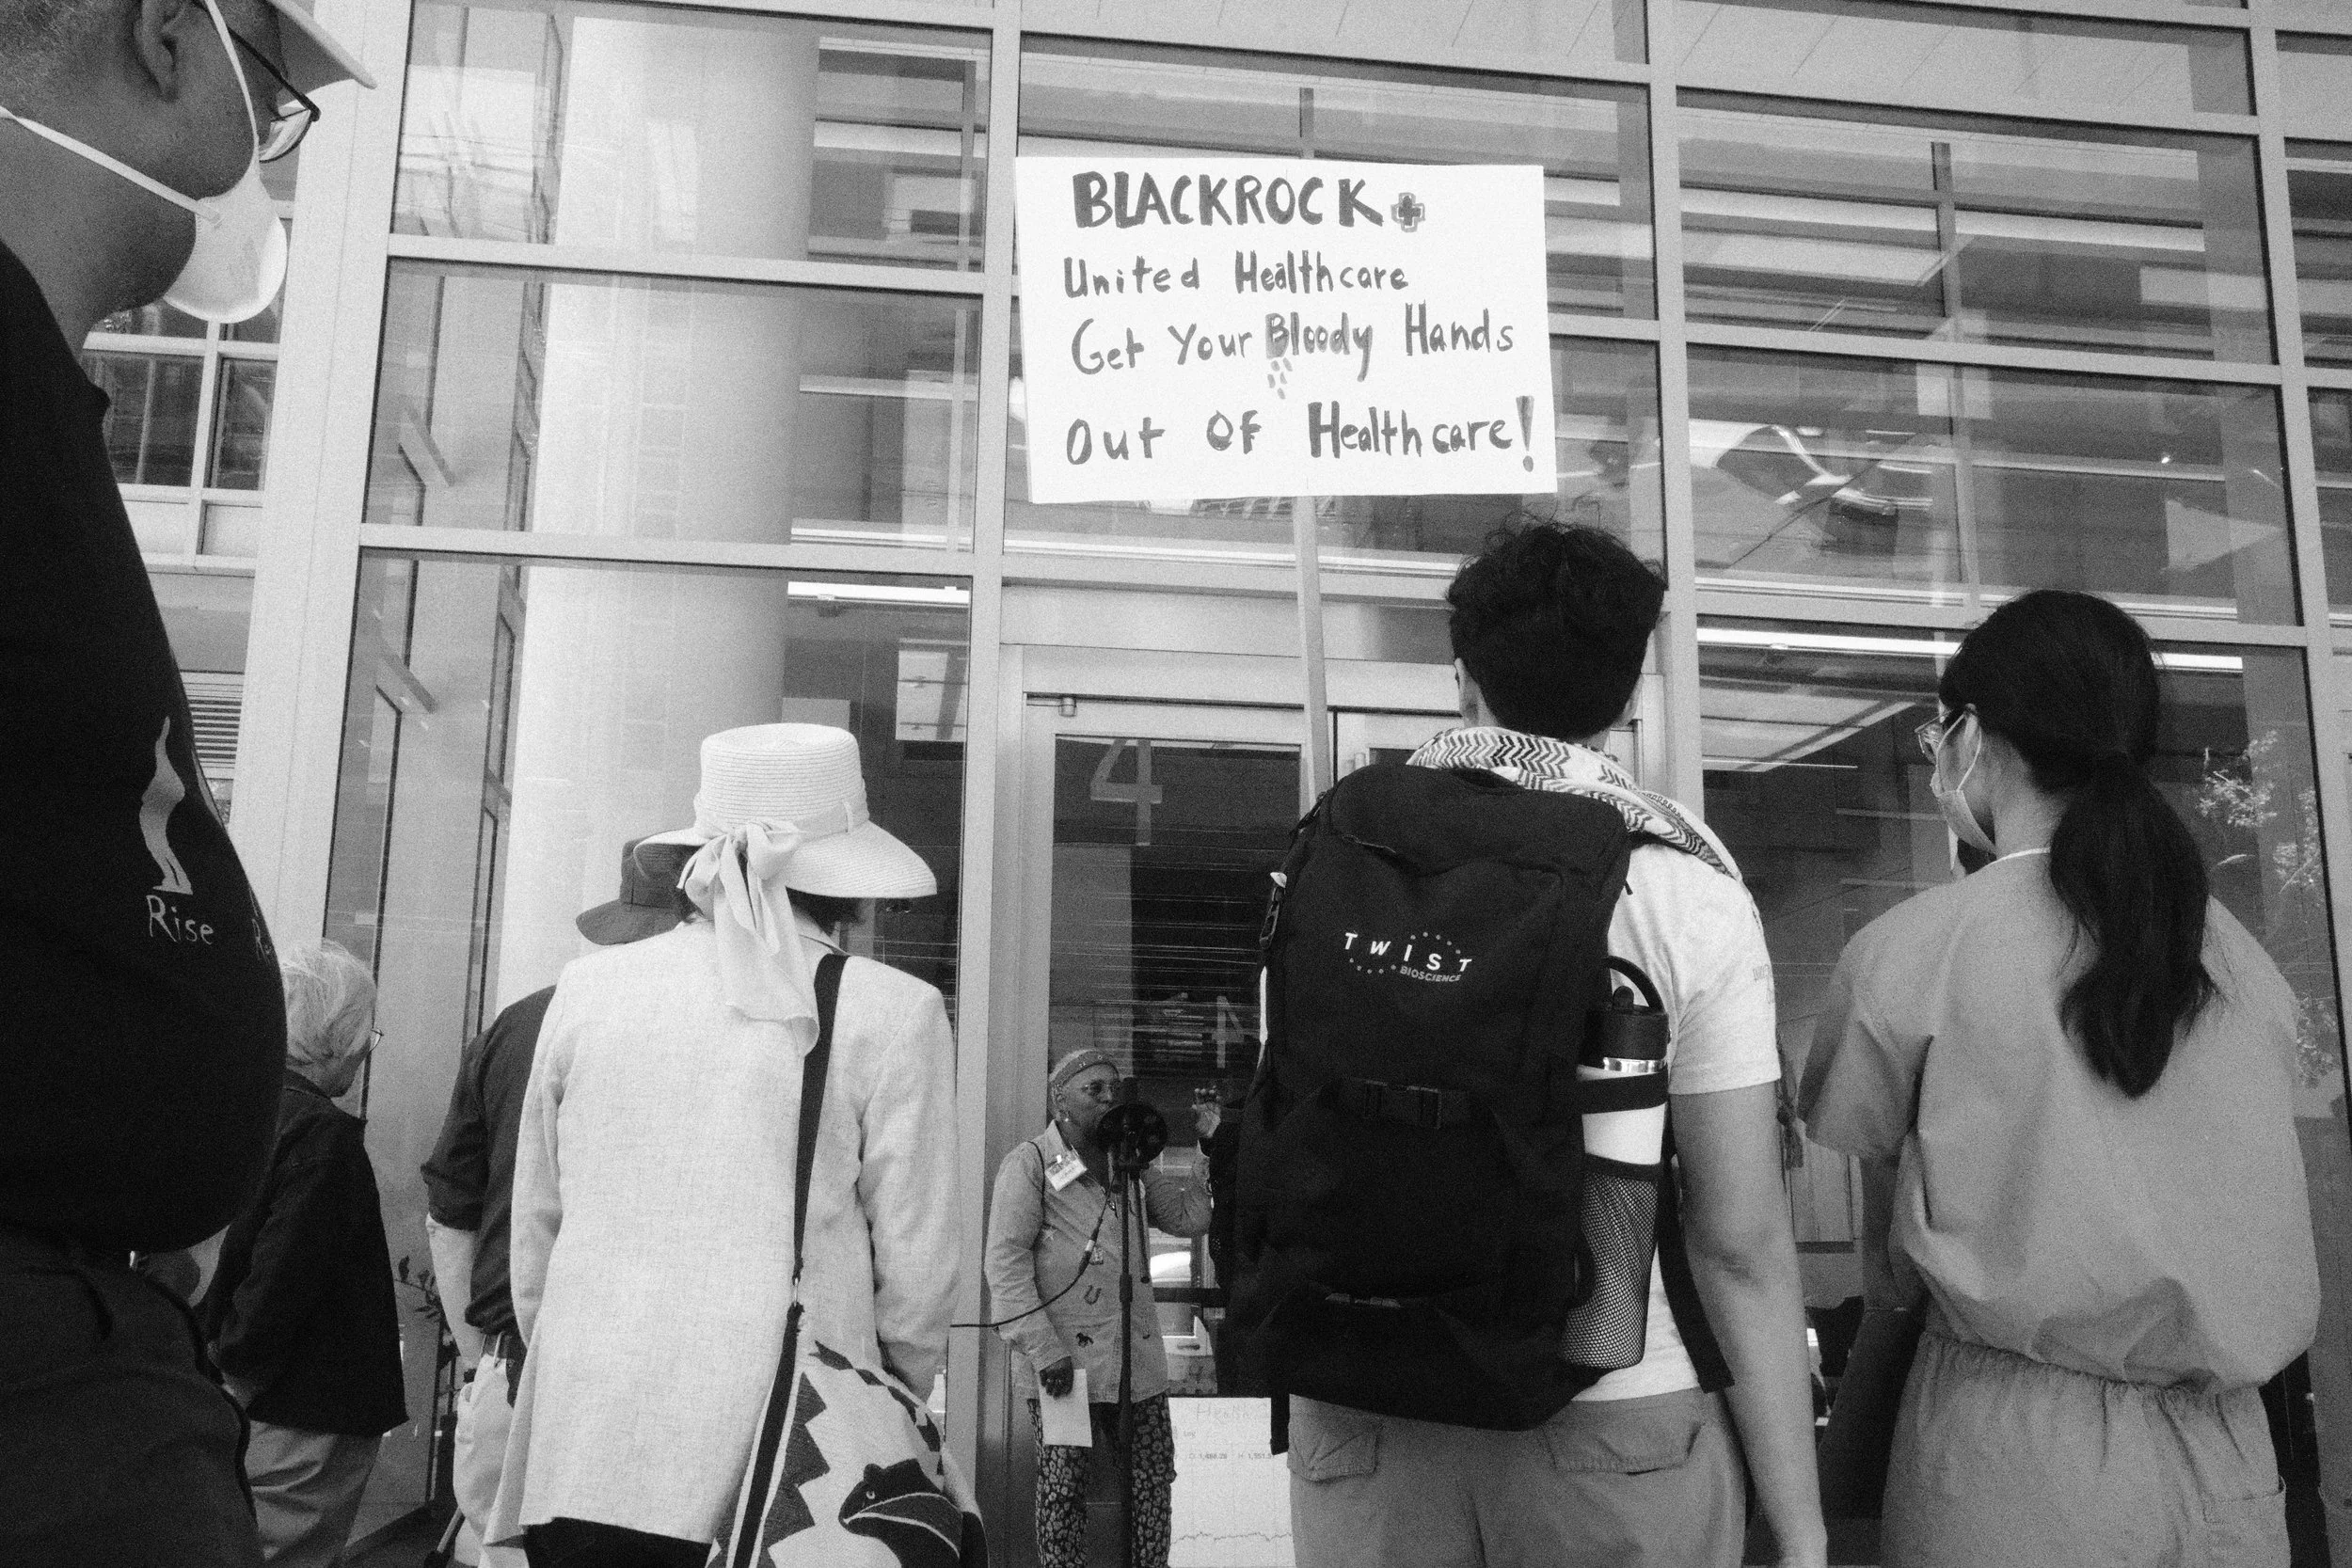 BLACKROCK +
United Healthcare
Get Your Bloody Hands
Out OF Healthcare!
4
Rise
TWIST
BIOSCIENCE
4
Health